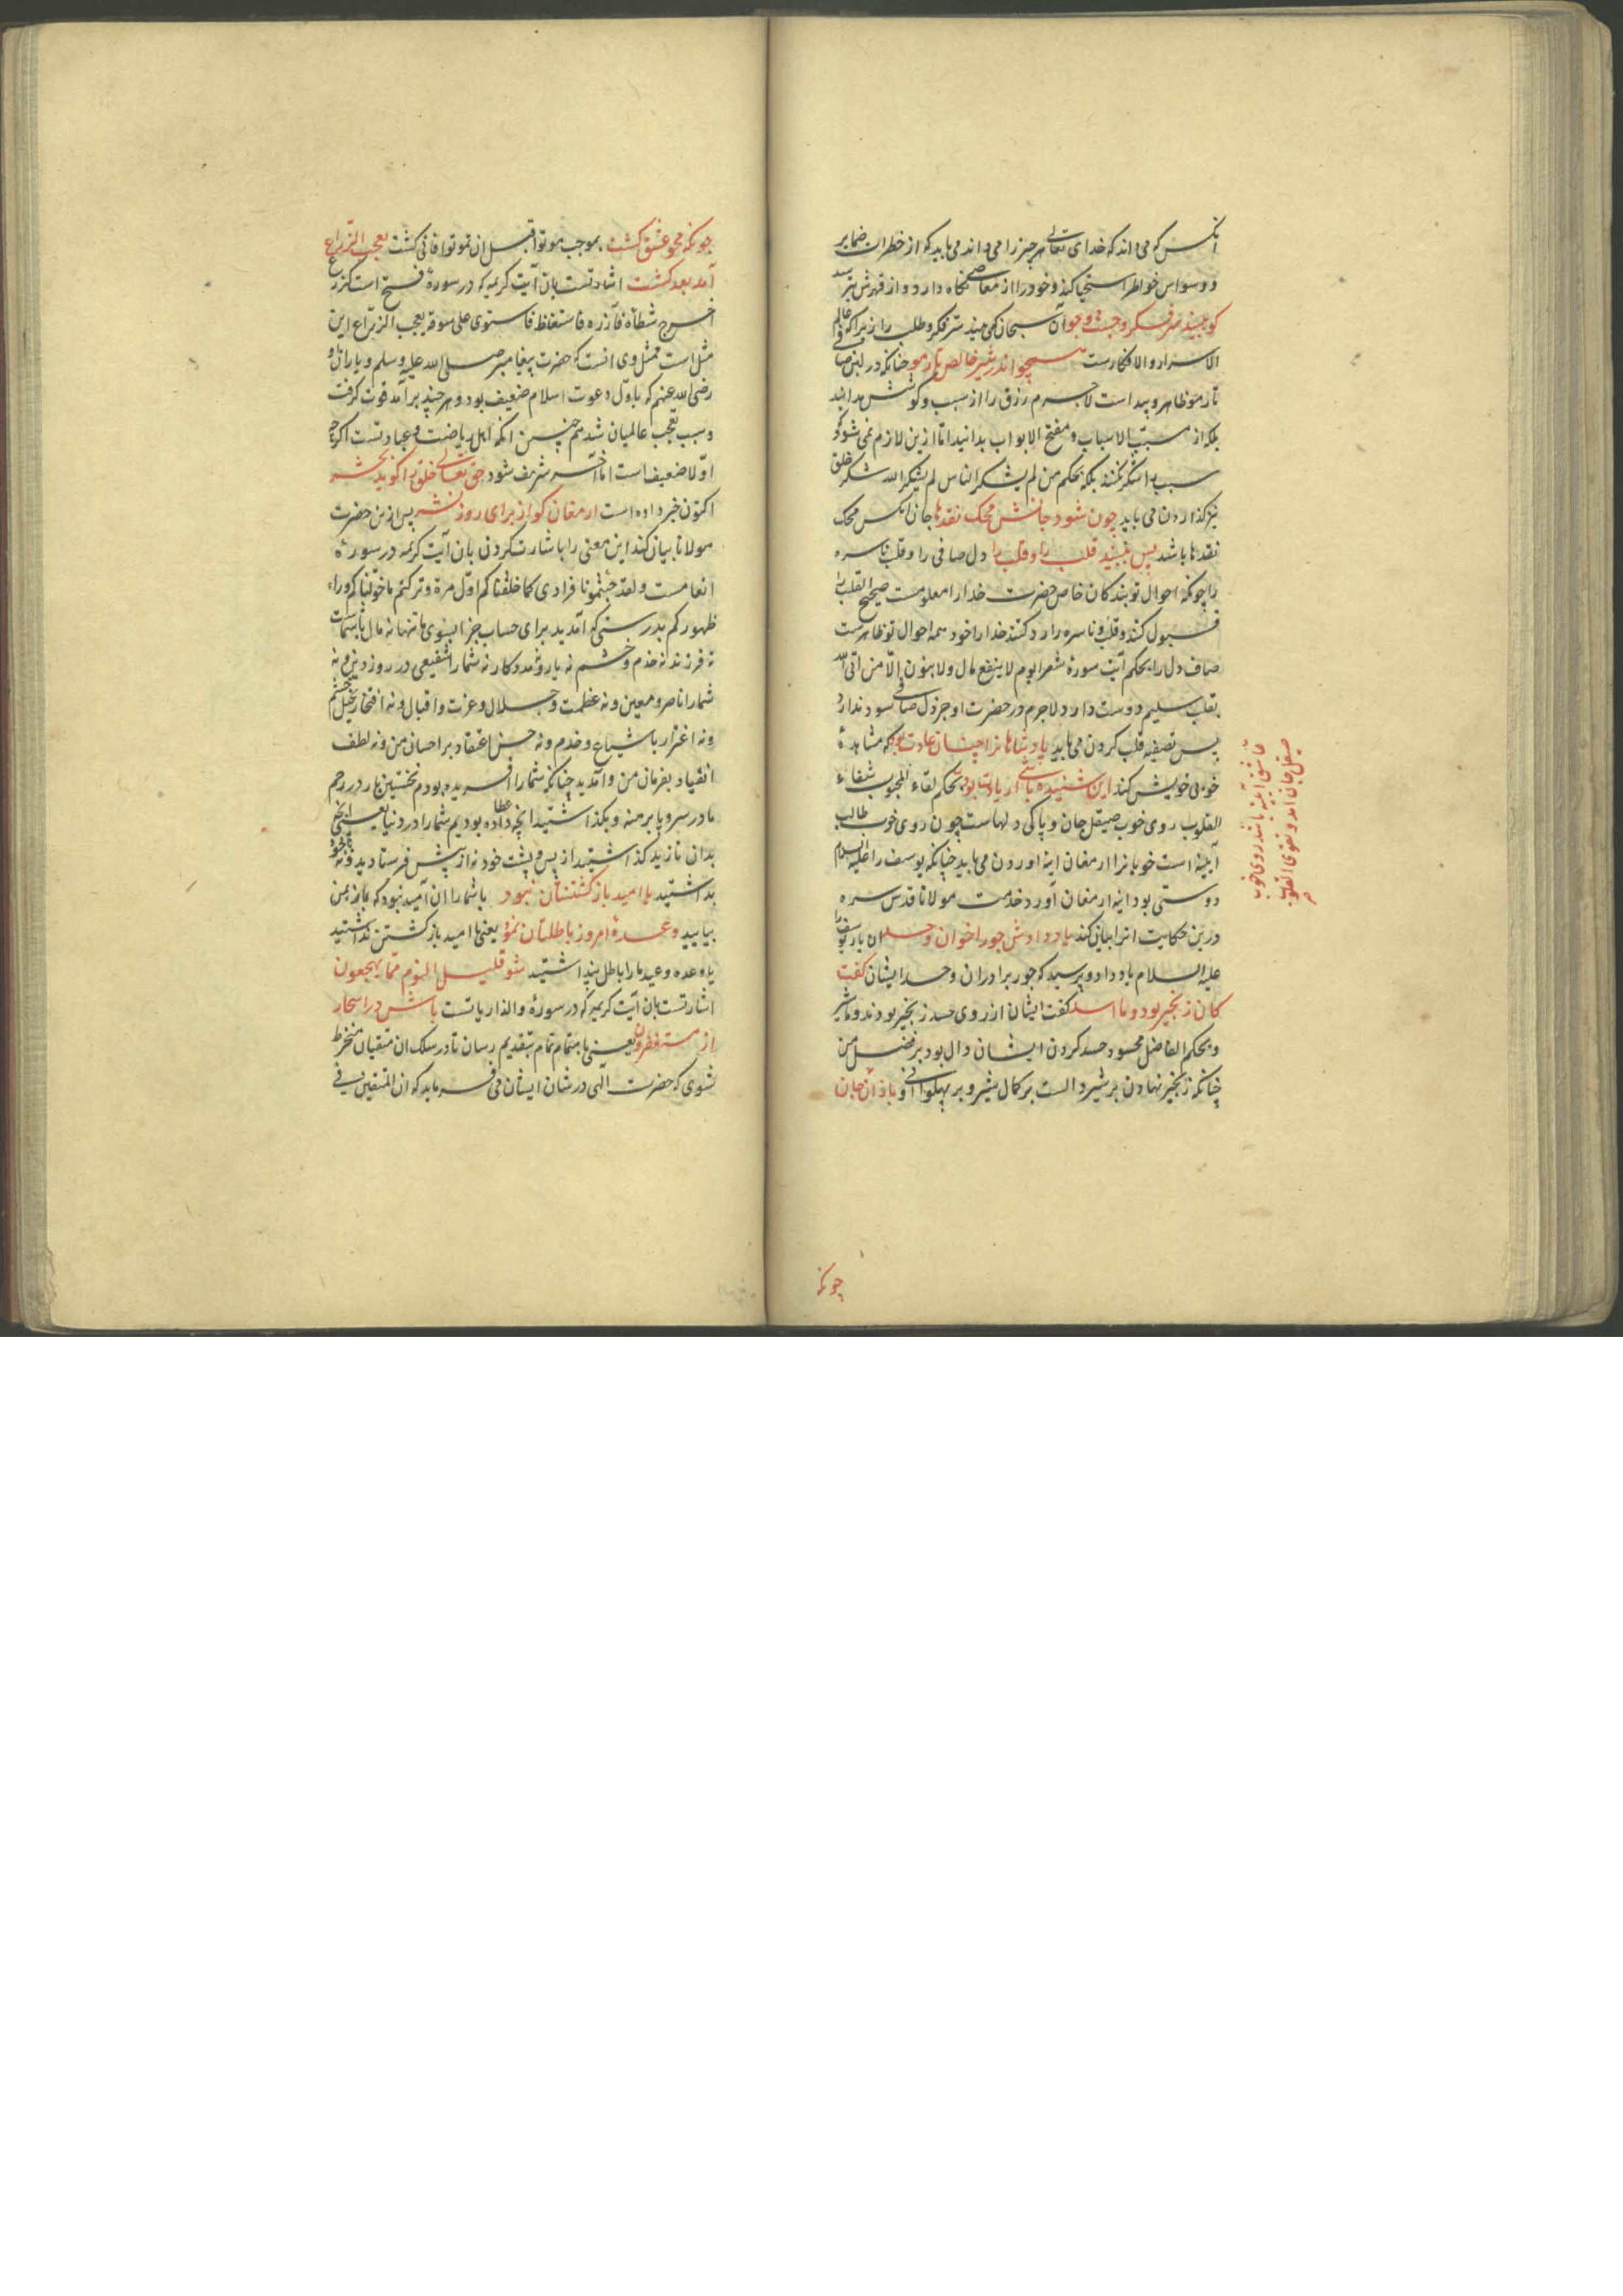 آنکس که می داند که خدای تعالی هر چیز را می داند می باید که از خطرات ضمایر
و وسواس خواطر استحیا کند و خود را از معاصی نگاه دارد و از قهرش بترسد
کو ببیند سر فکر و جست و جو آن سبحان که می بیند سر فکر و طلب را زیرا که عالم
الاسرار و الافکارست همچو اندر شیر خالص تار مو چنانکه در لبن صافی
تار مو ظاهر و پیداست لاجرم رزق را از سبب و کوشش مدانید
بلکه از مسبب الاسباب و مفتح الابواب بدانید اما ازین لازم نمی شود که
سبب را شکر نکنند بلکه بحکم من لم یشکر الناس لم یشکر الله شکر خلق
نیز گذاردن می باید چون شود جانش محک نقدها جان آنکس محک
نقدها باشد پس ببیند قلب را و قلب را دل صافی را و قلب ناسره
را چونکه احوال تو بندکان خاص حضرت خدا را معلومست صحیح القلب را
قبول کنند و قلب و ناسره را رد کنند خدا را خود همه احوال تو ظاهرست
صاف دل را بحکم آیت سورهٔ شعرا یوم لا ینفع مال ولا بنون الّا من اتی الله
بقلب سلیم دوست دارد لاجرم در حضرت او جز دل صافی سود ندارد
پس تصفیه قلب کردن می باید پادشاهانرا چنان عادت بود که مشاهدهٔ
خوبی خویش کنند این شنیده باشی ار یادت بود بحکم لقاء المحبوب شفاء
القلوب روی خوب صیقل جان و پاکی دلهاست چون روی خوب طالب
آیینه است خوبانرا ارمغان اینه اوردن می باید چنانکه یوسف را علیه السلام
دوستی بود اینه ارمغان آورد خدمت مولانا قدس سره
درین حکایت انرا بیان کند یاد دادش جور اخوان و حسد ان یار یوسف را
علیه السلام یاد داد و پرسید که جور برادران و حسد ایشان کفت
کان زنجیر بود و ما اسد کفت ایشان از روی حسد زنجیر بودند و ما شیر
و بحکم الفاضل محسود حسد کردن ایشان دال بود بر فضل من
چنانکه زنجیر نهادن بر شیر دالست بر کمال شیر و بر پهلوانی او باز آن جان
عاشق آیینه باشد روی خوب
صیقل جان آمد و تقوی القلوب
چونکه
چونکه محو عشق کشت بموجب موتوا قبل ان تموتوا فانی کشت یعجب الزراع
آمد بعد کشت اشارتست بان آیت کریمه که در سورهٔ فتح است کزرع
اخرج شطأه فآزره فاستغلظ فاستوی علی سوقه یعجب الزراع این
مثل است ممثل وی انست که حضرت پیغامبر صلی الله علیه و سلم و یاران او
رضی الله عنهم که باوّل دعوت اسلام ضعیف بود و هر چند بر آمد قوت کرفت
و سبب تعجب عالمیان شد همچنین آنکه اهل ریاضت و عبادتست اکرچه
اوّلا ضعیف است اما آخر شریف شود حق تعالی خلق را کوید بحشر
اکنون خبر داده است ارمغان کو از برای روز نشر پس ازین حضرت
مولانا بیان کند این معنی را باشارت کردن بان آیت کریمه در سورهٔ
انعامست ولقد جئتمونا فرادی کما خلقناکم اوّل مرة وترکتم ما خوّلناکم وراء
ظهورکم بدرستی که آمدید برای حساب جزا بسوی ما تنها نه مال
نه فرزند نه خدم و حشم نه یار و مددکار نه شما را شفیعی در روز
شما را ناصر و معین و نه عظمت و جلال و عزت و اقبال و نه افتخار بخیل و حشم
و نه اغترار باشیاع و خدم و نه حسن اعتقاد بر احسان من و نه لطف
انقیاد بفرمان من و آمدید چنانکه شما را افریده بودم نخستین بار در رحم
مادر سر و پا برهنه و بگذاشتید آنچه عطا داده بودیم شما را در دنیا یعنی آنچه
بدان نازید گذاشتید از پس پشت خود نه از پیش فرستادید و نه با خود
بداشتید یا امید باز کشتنتان نبود یا شما را ان امید نبود که باز بمن
بیایید وعدهٔ امروز باطلتان نمود یعنی یا امید باز کشتن نداشتید
یا وعده و وعید ما را باطل پنداشتید شو قلیل النوم ممّا یهجعون
اشارتست بان آیت کریمه که در سورهٔ والذاریاتست باش در اسحار
از یستغفرون یعنی باهتمام تمام بتقدیم رسان تا در سلک ان متقیان منخرط
شوی که حضرت الهی در شان ایشان می فرماید که ان المتقین فی